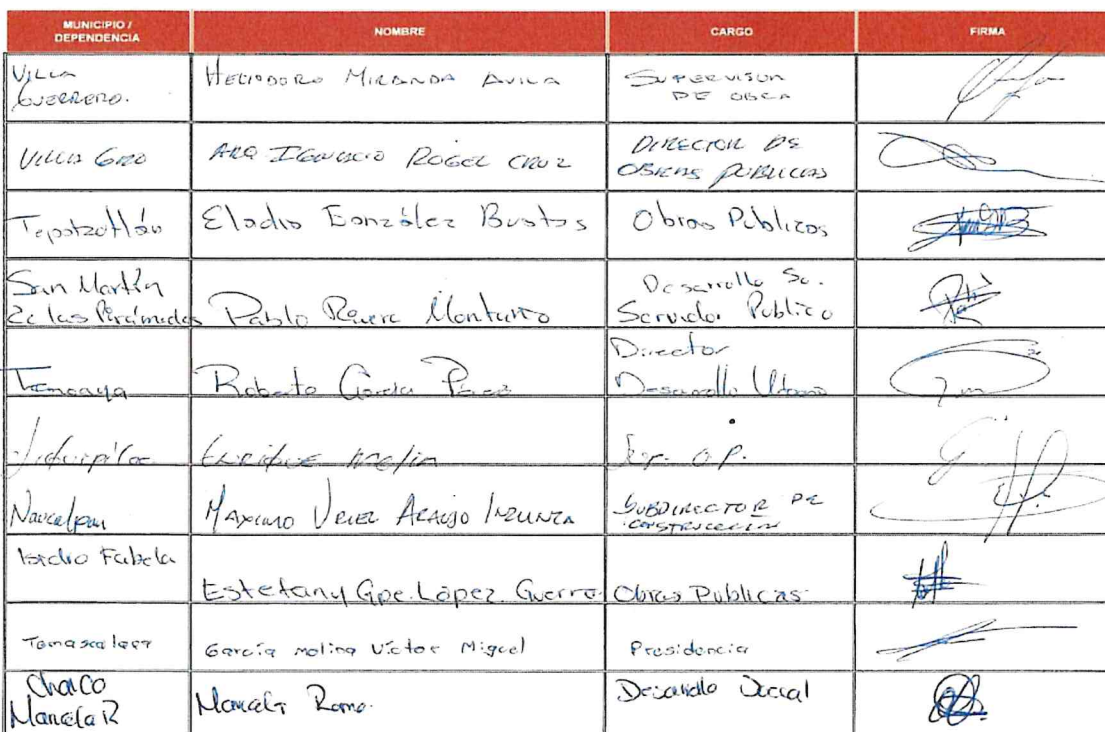 MUNICIPIO / DEPENDENCIA NOMBRE CARGO FIRMA
VILLA GUERRERO. HELIODORO MIRANDA AVILA SUPERVISOR DE OBRA
VILLA GRO ARQ IGNACIO ROGEL CRUZ DIRECTOR DE OBRAS PUBLICAS
Tepotzotlán Eladio González Bustos Obras Publicas
San Martín de las Pirámides Pablo Rivera Desarrollo So. Servidor Publico
Temoaya Roberto García Pérez Director Desarrollo Urbano
ENRIQUE O.P.
Naucalpan MAXIMO URIEL ARAUJO INZUNZA SUBDIRECTOR DE CONSTRUCCION
Isidro Fabela Estefany Gpe. López Guerro Obras Publicas
García molina Victor Miguel Presidencia
Chalco Marcela R Marcela Romo. Desarrollo Social